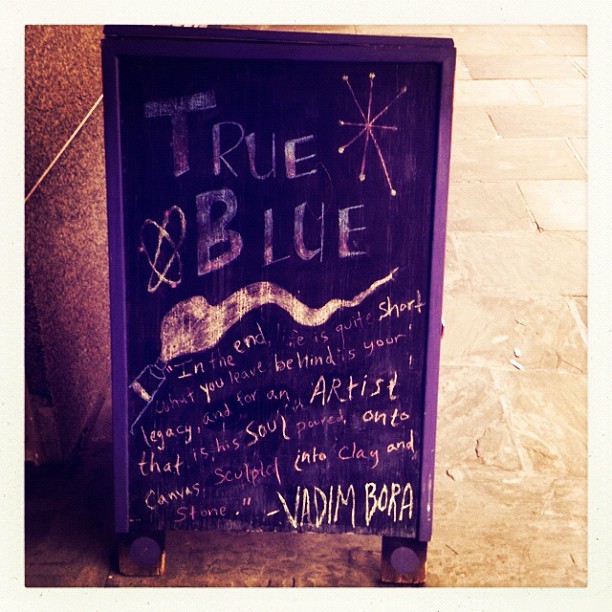 TRUE
BLUE
"In the end, life is quite short
what you leave behind is your
legacy, and for an ARTist
that is his SOUl poured onto
Canvas. Sculpted into Clay and
Stone." -VADIM BORA